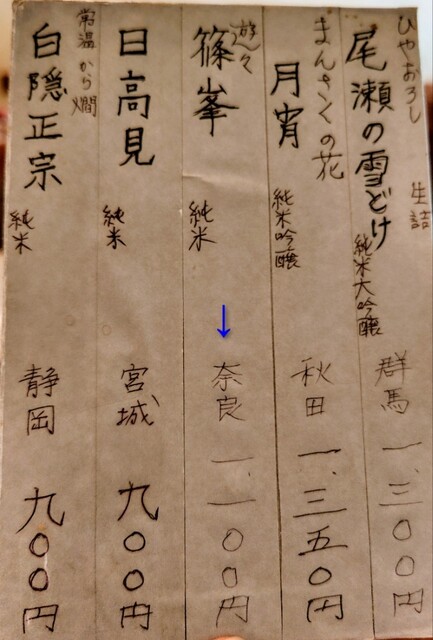 ひやおろし 生詰
尾瀬の雪どけ 純米大吟醸 群馬 一、三〇〇円
まんさくの花
月宵 純米吟醸 秋田 一、三五〇円
遊々
篠峯 純米 奈良 一、一〇〇円
日高見 純米 宮城 九〇〇円
常温から燗
白隠正宗 純米 静岡 九〇〇円